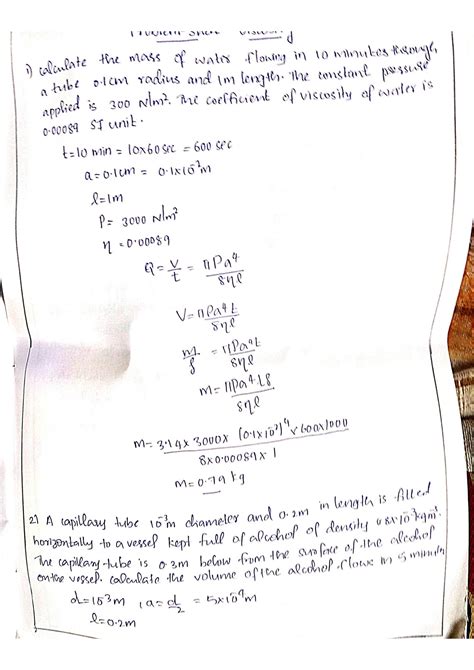 Problem Sheet Viscosity
1) calculate the mass of water flowing in 10 minutes through,
a tube 0.1cm radius and 1m length. The constant pressure
applied is 300 N/m². The coefficient of viscosity of water is
0.00089 SI unit.
t=10 min = 10x60sec = 600 sec
a=0.1cm = 0.1x10⁻²m
l=1m
P= 3000 N/m²
η = 0.00089
Q = V/t = πPa⁴/8ηl
V= πPa⁴t/8ηl
m/ρ = πPa⁴t/8ηl
M= πPa⁴tρ/8ηl
M= 3.14 x 3000 x (0.1x10⁻²)⁴ x 600x1000 / 8x0.00089x1
M= 0.79 kg
2) A capillary tube 10⁻³m diameter and 0.2m in length is filled
horizontally to a vessel kept full of alcohol of density 0.8x10⁻³kgm⁻³
The capillary tube is 0.3m below from the surface of the alcohol
on the vessel. calculate the volume of the alcohol flows in 5 minutes
d=10⁻³m , a= d/2 = 5x10⁻⁴m
l=0.2m